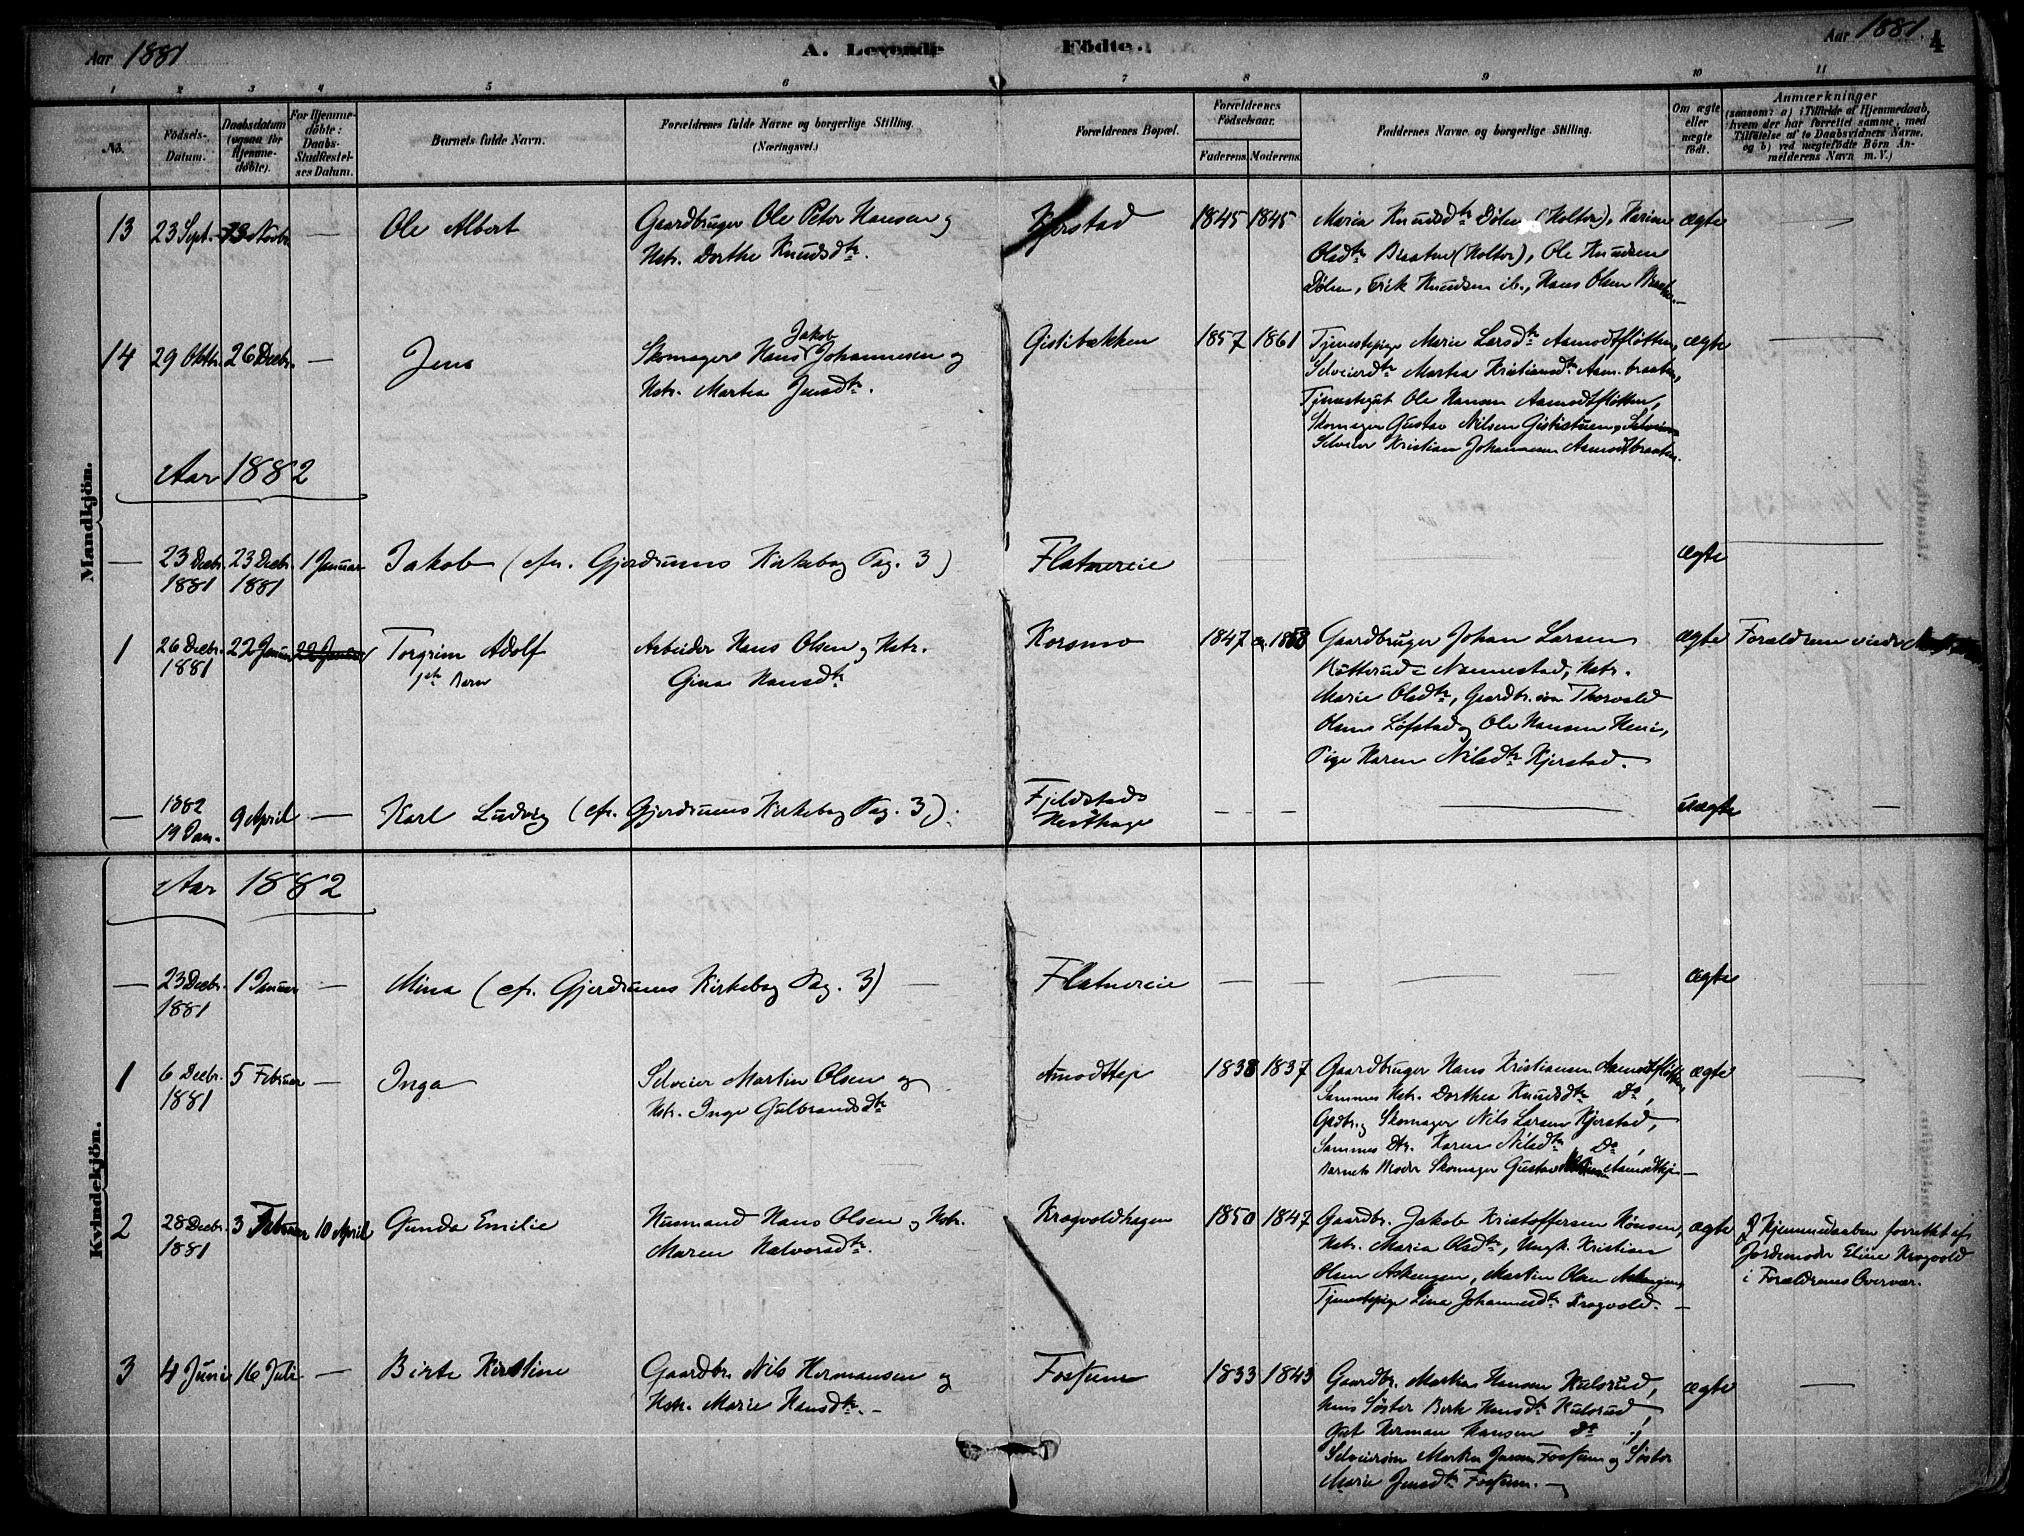 Aar 1881
A. Levende Födte.
Aar 1881.
4
1 2 3 4 5 6 7 8 9 10 11
No.
Födsels-
Datum.
Daabsdatum
(ogsaa för
Hjemme-
döbte).
For Hjemme-
döbte:
Daabs-
Stadfæstel-
ses Datum.
Barnets fulde Navn.
Forældrenes fulde Navne og borgerlige Stilling.
(Næringsvei.)
Forældrenes Bopæl.
Forældrenes
Födselsaar.
Faderens. Moderens.
Faddernes Navne og borgerlige Stilling.
Om ægte
eller
uægte
födt.
Anmærkninger
(saasom: a) i Tilfælde af Hjemmedaab,
hvem der har forrettet samme, med
Tilföielse af to Daabsvidners Navne,
og b) ved uægtefödte Börn An-
melderens Navn m. V.)
Mandkjön.
13 23 Sept. 13 Novbr. — Ole Albert
Gaardbruger Ole Peter Hansen og
Hstr. Dorthe Knudsdtr.
Kjerstad 1845 1845
Maria Knudsdtr Dølen (Holter), Karine
Olsdtr Braaten (Holter), Ole Knudsen
Dølen, Erik Knudsen ib., Hans Olsen Braaten.—
ægte —
14 29 Oktbr. 26 Decbr. — Jens
Jakob
Skomager Hans Johannesen og
Hstr. Martea Jensdtr.
Gistibækken 1857 1861
Tjenestepige Marie Larsdtr Aamodtfløtten,
Selveierdtr Martea Kristiansdtr Aam. braaten,
Tjenestegut Ole Hansen Aamodtfløtten,
Skomager Gustav Nilsen Gististuen, Selveier
Selveier Kristian Johannesen Aamodtbraaten.
ægte —
Aar 1882
— 23 Decbr. 1881 23 Decbr. 1881 1 Januar Jakob (cfr. Gjerdrums Kirkebog Pag. 3) Flatnereie — — — ægte —
1 26 Decbr. 1881 22 Januar 22 Januar Torgrim Adolf
1ste Barn
Arbeider Hans Olsen og Hstr.
Gina Hansdtr
Korsmo 1847 1858
Gaardbruger Johan Larsen
Kötterud = Nannestad, Hstr.
Marie Olsdtr, Gaardbr.søn Thorvald
Olsen Løfstad og Ole Hansen Heni,
Pige Karen Nilsdtr Kjerstad.
ægte Forældrene viede
— 1882 19 Jan. 9 April — Karl Ludvig (cfr. Gjerdrums Kirkebog Pag. 3).
Fjeldstads
Hesthage
— — — uægte —
Kvindekjön.
Aar 1882
— 23 Decbr. 1881 1 Januar — Mina (cfr. Gjerdrums Kirkebog Pag. 3) — Flatnereie — — — ægte
1 6 Decbr. 1881 5 Februar — Inga
Selveier Martin Olsen og
Hstr. Inge Gulbrandsdtr
Amodteje 1838 1837
Gaardbruger Hans Kristiansen Aamodtfløtten,
Sammes Hstr. Dorthea Knudsdtr Do,
Gdbr. og Skomager Nils Larsen Kjerstad,
Sammes Dtr. Karen Nilsdtr Do,
Barnets Broder Skomager Gustav Aamodteje—
ægte —
2 28 Decbr. 1881 3 Februar 10 April Gunda Emilie
Husmand Hans Olsen og Hstr.
Maren Halvorsdtr.
Krogvoldhagen 1850 1847
Gaardbr. Jakob Kristoffersen Hönsen,
Hstr. Maria Olsdtr, Ungk. Kristian
Olsen Askengen, Martin Olsen Askengen,
Tjenestepige Lina Johannesdtr Krogvold.—
ægte
Hjemmedaaben forrettet af
Jordemoder Eline Krogvold
i Forældrenes Overvær.
3 4 Juni 16 Juli — Birte Kirstine
Gaardbr. Nils Hermansen og
Hstr. Marie Hansdtr.—
Fossum 1833 1843
Gaardbr. Martin Hansen Kulsrud,
hans Søster Berte Hansdtr Kulsrud,
Gut Herman Hansen Do,
Selveiersøn Martin Jensen Fossum og Søster
Marie Jensdtr Fossum.—
ægte —